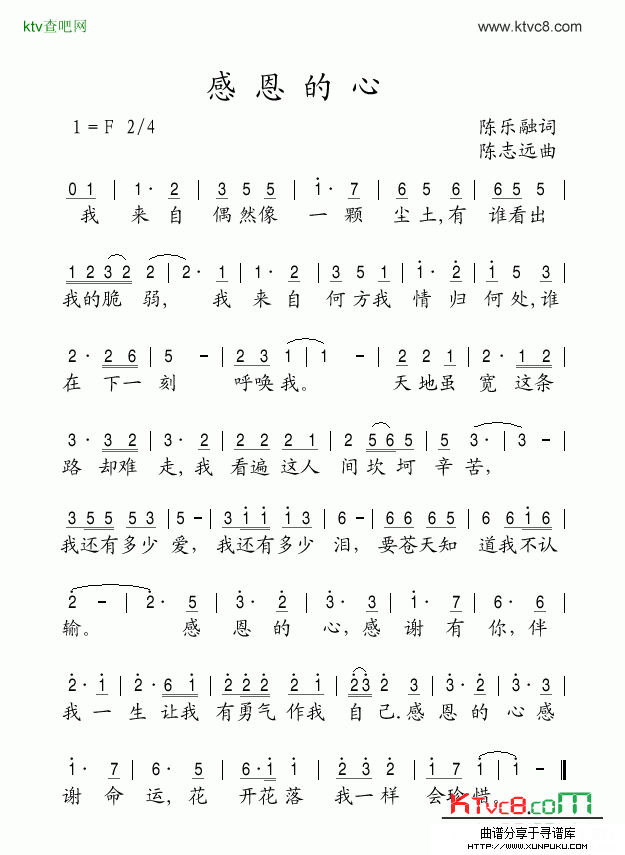 ktv查吧网 www.ktvc8.com
感恩的心
1=F 2/4 陈乐融词
陈志远曲
0 1 | 1· 2 | 3 5 5 | i· 7 | 6 5 6 | 6 5 5 |
我 来自 偶然像 一颗 尘土,有 谁看出
1 2 3 2 2 | 2· 1 | 1· 2 | 3 5 1 | i· 2 | i 5 3 |
我的脆 弱, 我 来自 何方我 情归何处,谁
2· 2 6 | 5 - | 2 3 1 | 1 - | 2 2 1 | 2· 1 2 |
在 下一刻 呼唤我。 天地虽 宽这条
3· 3 2 | 3· 2 | 2 2 2 1 | 2 5 6 5 | 3· | 3 - |
路 却难 走,我 看遍这人 间坎坷 辛苦,
3 5 5 5 3 | 5 - | 3 i i i 3 | 6 - | 6 6 6 5 | 6 6 i 6 |
我还有多少 爱, 我还有多少 泪, 要苍天知 道我不认
2 - | 2· 5 | 3· 2 | 3· 3 | i· 7 | 6· 6 |
输。 感 恩的 心,感 谢有 你,伴
2· i | 2· 6 i | 2 2 2 2 i | 2 3 2 3 | 3· 2 | 3· 3 |
我一 生让我 有勇气作我 自己.感 恩的 心感
i· 7 | 6· 5 | 6· i i | 2 3 2 | i 7 i | i - ‖
谢命 运,花 开花落 我一样 会珍惜。
KTvc8.com
曲谱分享于寻谱库
WWW.XUNPUKU.COM